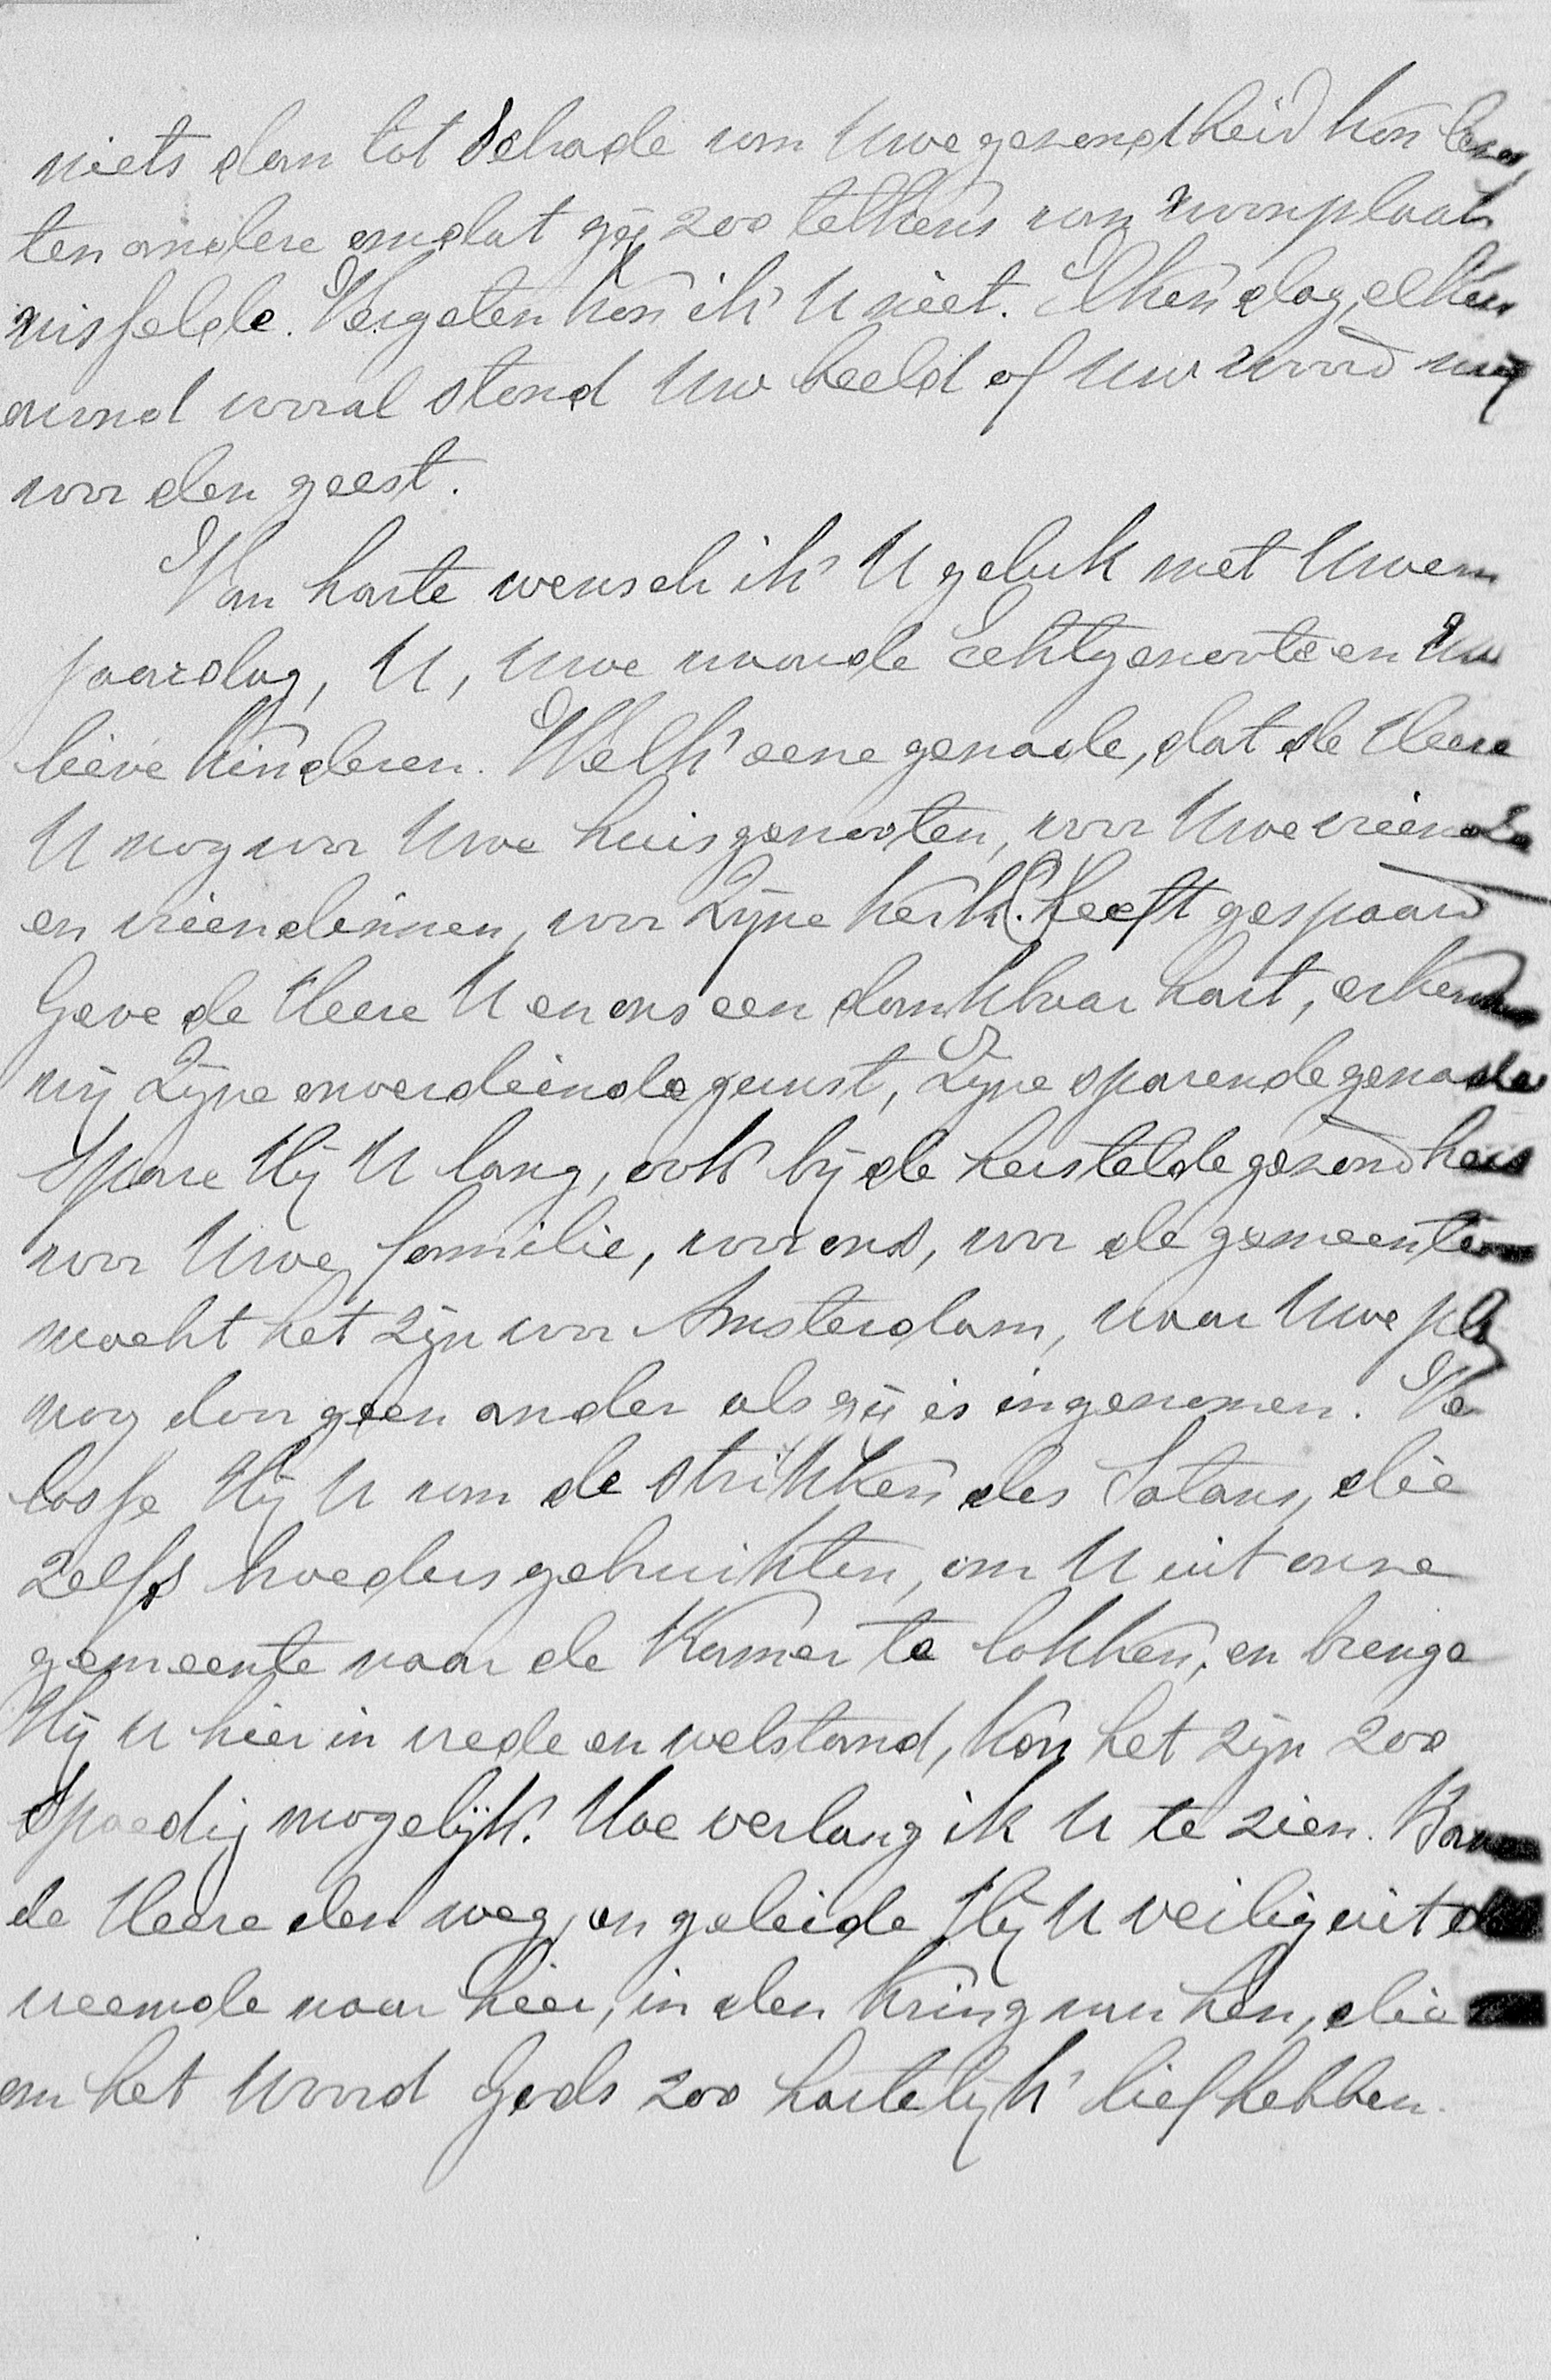 niets dan tot schade van Uwe gezondheid kon
ten andere omdat gij zoo telkens van woonplaats
wisselde. Vergeten kon ik U niet. Elken dag, elken
avond vooral stond Uw beeld of Uw woord mij
voor den geest.
Van harte wensch ik U geluk met Uwen
jaardag, U, Uwe waarde Echtgenoote en Uw
lieve kinderen. Welk eene genade, dat de Heere
U nog voor Uwe huisgenooten, voor Uwe vrienden
en vriendinnen, voor Zijne kerk (?) heeft gespaard
Geve de Heere U en ons een dankbaar hart, erkennen
wij Zijne onverdiende gunst, Zijne sparende genade
Spare Hij U lang, ook bij de herstelde gezondheid
voor Uwe familie, voor ons, voor de gemeente
mocht het zijn voor Amsterdam, waar Uwe
nog door geen ander als gij is ingenomen. Ver
losse Hij U van de strikken des Satans, die
zelfs broeders gebruikten, om U uit onze
gemeente naar de Kamer te lokken, en brenge
Hij U hier in vrede en welstand, kon het zijn zoo
spoedig mogelijk. Hoe verlang ik U te zien. Bane
de Heere den weg, en geleide Hij U veilig uit de
vreemde naar hier, in den kring van hen, die
om het Woord Gods zoo hartelijk liefhebben.